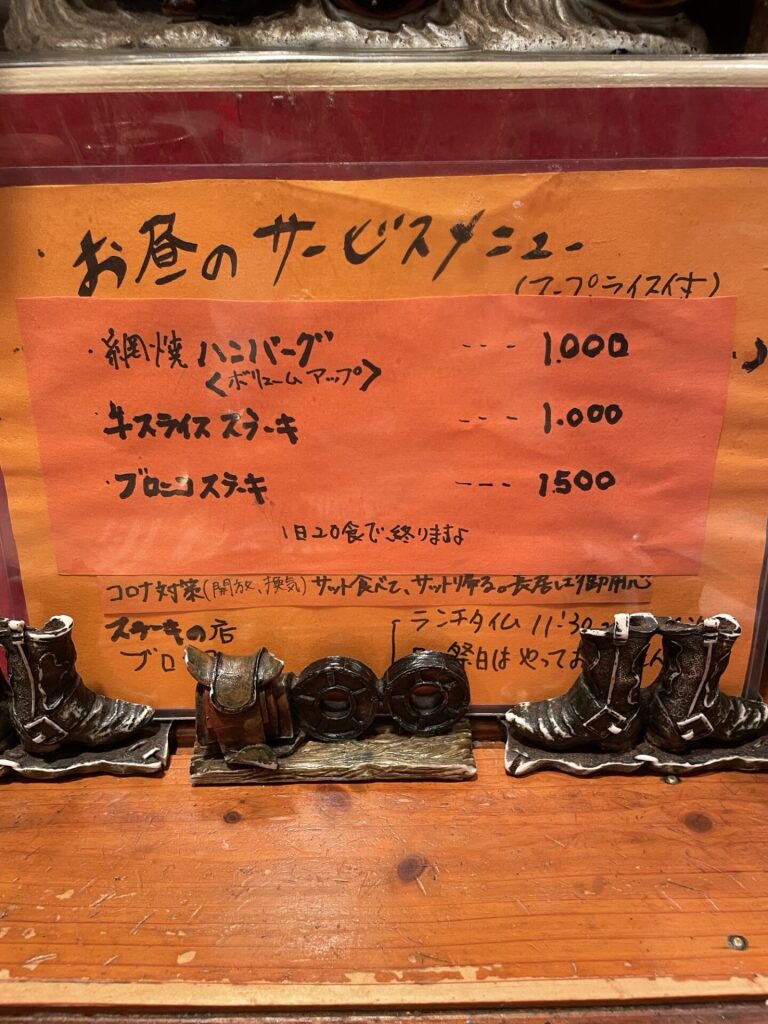 お昼のサービスメニュー
(スープ.ライス付)
・網焼ハンバーグ --- 1.000
<ボリュームアップ>
牛スライスステーキ --- 1.000
・ブロンコステーキ --- 1.500
1日20食で終りますよ
コロナ対策(開放、換気)サット食べて、サット帰る。長居は御用心
ステーキの店
ランチタイム 11:30
ブロ
祭日はやってお